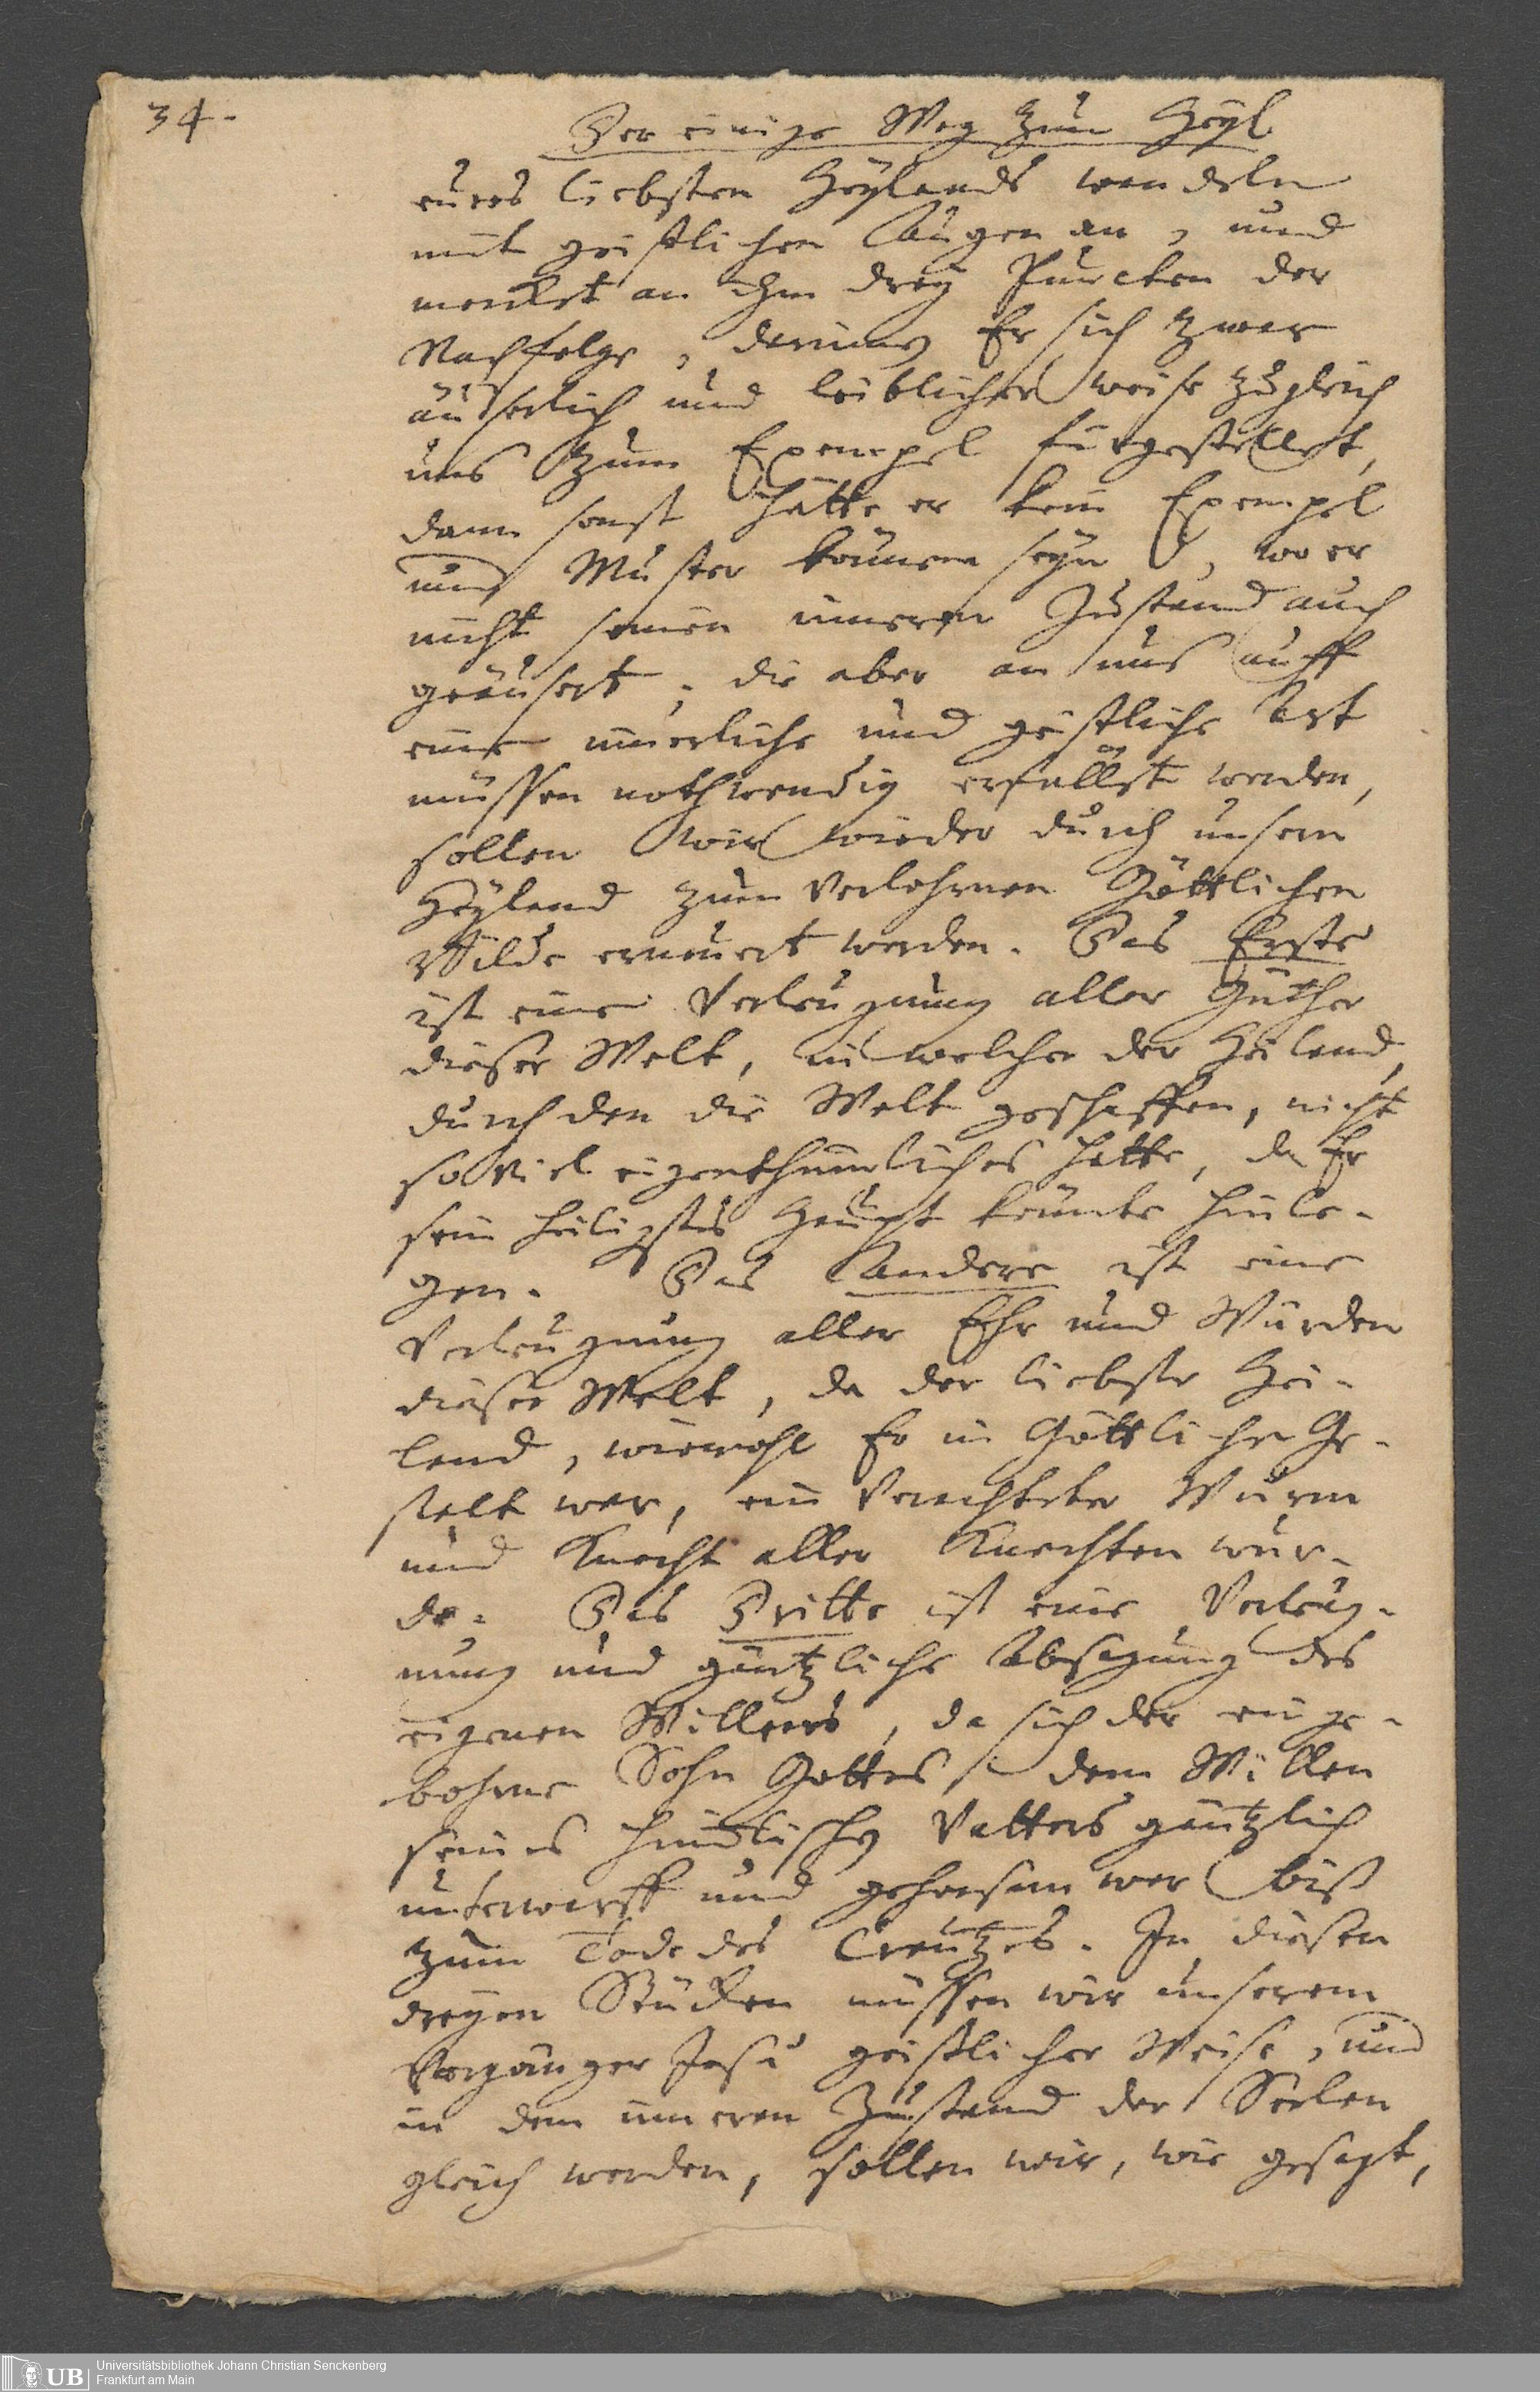 34.
Der einige Weg zum Heyl.
eures liebsten Heylands wandeln
mit geistlichen Augen an, und
mercket an ihm drey Puncten der
Nachfolge, darinnen Er sich zwar
äusserlich und leiblicher weise zugleich
uns zum Exempel fürgestellet,
dann sonst hätte er kein Exempel
und Muster können seyn, wo er
nicht seinen inneren Zustand auch
geäusert, die aber an uns auff
eine innerliche und geistliche Art
müssen nothwendig erfüllet werden,
sollen wir wieder durch unsern
Heyland zum verlohrnen Göttlichen
Bilde erneuert werden. Das Erste
ist eine Verleugnung aller Güther
dieser Welt, in welcher der Heiland,
durch den die Welt geschaffen, nicht
so viel eigenthumliches hatte, da Er
sein heiligstes Haupt könnte hinle-
gen. Das Andere ist eine
Verleugnung aller Ehr und Würden
dieser Welt, da der liebste Hei-
land, wiewohl Er in Göttlicher Ge-
stalt war, ein verachteter Wurm
und Knecht aller Knechten wur-
de. Das Dritte ist eine Verleug-
nung und gäntzliche Absagung des
eigenen Willens, da sich der einge-
bohrne Sohn Gottes, dem Willen
seines himlischen Vatters gäntzlich
unterwarff und gehorsam war biß
zum Tode des Creutzes. In diesen
dreyen Stücken müssen wir unserem
Vorgänger Jesu geistlicher Weise, und
in dem inneren Zustand der Seelen
gleich werden, sollen wir, wie gesagt,
UB Universitätsbibliothek Johann Christian Senckenberg
Frankfurt am Main